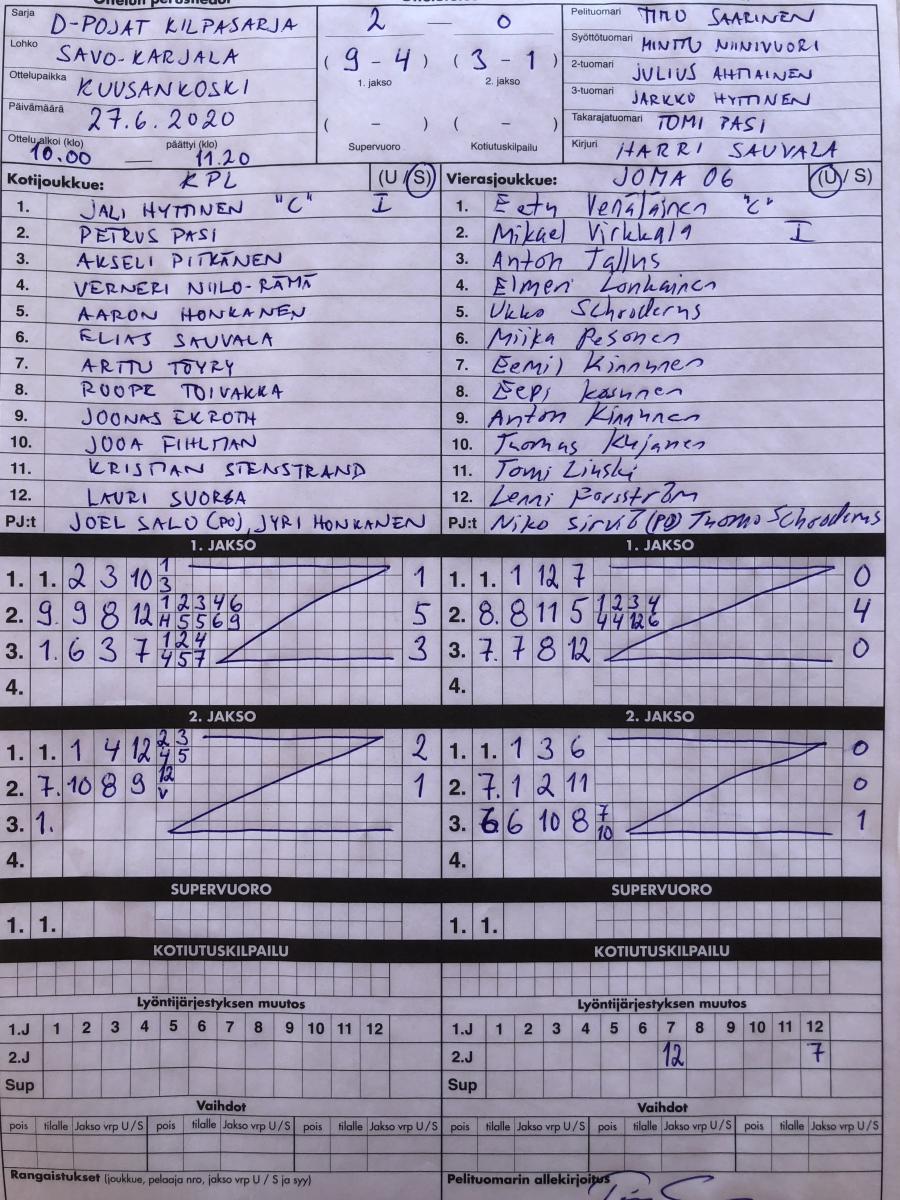 Sarja D-POJAT KILPASARJA
Lohko SAVO-KARJALA
Ottelupaikka KUUSANKOSKI
Päivämäärä 27.6.2020
Ottelu alkoi (klo) päättyi (klo)
10.00 — 11.20
2 — 0
( 9 - 4 ) ( 3 - 1 )
1. jakso 2. jakso
( - ) ( - )
Supervuoro Kotiutuskilpailu
Pelituomari TIMO SAARINEN
Syöttötuomari MINTTU NIINIVUORI
2-tuomari JULIUS AHTIAINEN
3-tuomari JARKKO HYTTINEN
Takarajatuomari TOMI PASI
Kirjuri HARRI SAUVALA
Kotijoukkue: KPL (U / S)
1. JALI HYTTINEN "C" I
2. PETRUS PASI
3. AKSELI PITKÄNEN
4. VERNERI NIILO-RÄMÄ
5. AARON HONKANEN
6. ELIAS SAUVALA
7. ARTTU TÖYRY
8. ROOPE TOIVAKKA
9. JOONAS EKROTH
10. JOOA FIHLMAN
11. KRISTIAN STENSTRAND
12. LAURI SUORSA
PJ:t JOEL SALO (PO), JYRI HONKANEN
Vierasjoukkue: JOMA 06 (U / S)
1. Eetu Venäläinen "C"
2. Mikael Virkkala I
3. Anton Tallus
4. Elmeri Lonkainen
5. Ukko Schroderus
6. Miika Pesonen
7. Eemil Kinnunen
8. Eepi Kosunen
9. Anton Kinnunen
10. Tuomas Kujanen
11. Tomi Linski
12. Lenni Forsström
PJ:t Niko Sirviö (PO) Tuomo Schroderus
1. JAKSO
1. 1. 2 3 10 1 1
3
2. 9. 9 8 12 1 2 3 4 6 5
4 5 5 6 9
3. 1. 6 3 7 1 2 4 3
4 5 7
4.
1. JAKSO
1. 1. 1 12 7 0
2. 8. 8 11 5 1 2 3 4 4
4 4 12 6
3. 7. 7 8 12 0
4.
2. JAKSO
1. 1. 1 4 12 2 3 2
4 5
2. 7. 10 8 9 12 1
V
3. 1.
4.
2. JAKSO
1. 1. 1 3 6 0
2. 7. 1 2 11 0
3. 6 6 10 8 7 1
10
4.
SUPERVUORO
1. 1.
SUPERVUORO
1. 1.
KOTIUTUSKILPAILU
KOTIUTUSKILPAILU
Lyöntijärjestyksen muutos
1.J 1 2 3 4 5 6 7 8 9 10 11 12
2.J
Sup
Lyöntijärjestyksen muutos
1.J 1 2 3 4 5 6 7 8 9 10 11 12
2.J 12 7
Sup
Vaihdot
pois tilalle Jakso vrp U/S pois tilalle Jakso vrp U/S pois tilalle Jakso vrp U/S
Vaihdot
pois tilalle Jakso vrp U/S pois tilalle Jakso vrp U/S pois tilalle Jakso vrp U/S
Rangaistukset (joukkue, pelaaja nro, jakso vrp U / S ja syy)
Pelituomarin allekirjoitus